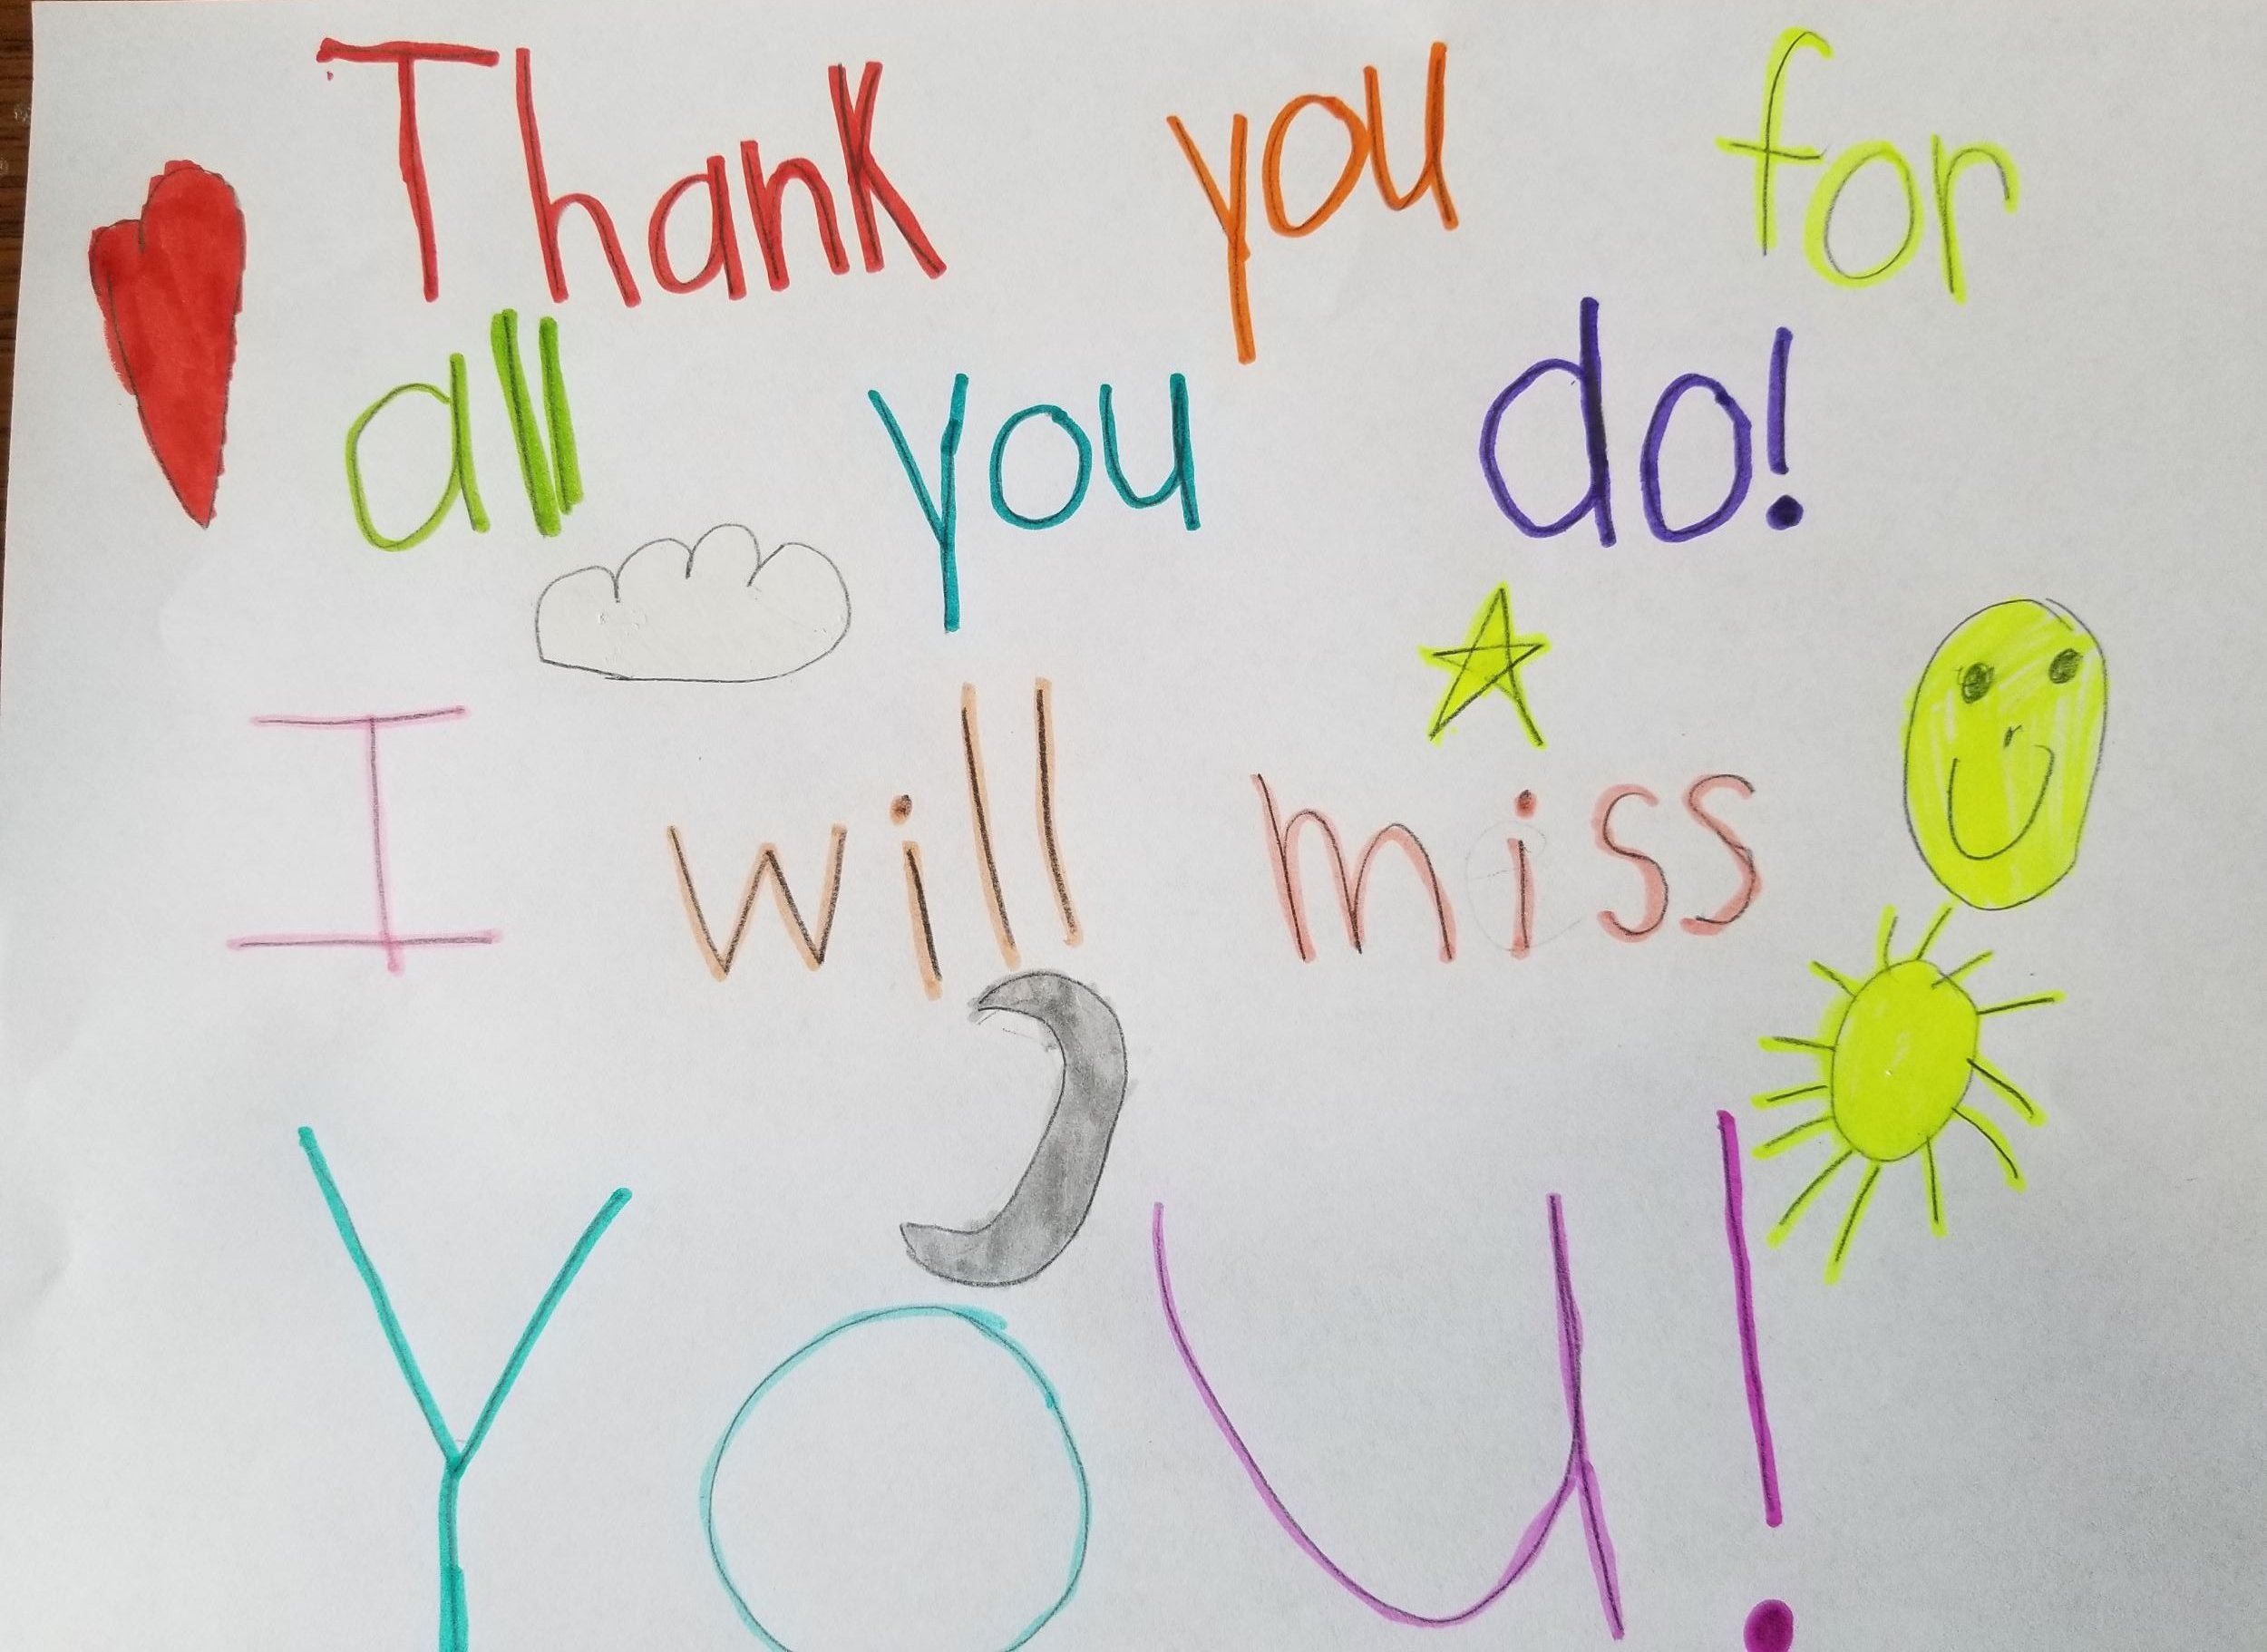 Thank you for
all you do!
I will miss
you!